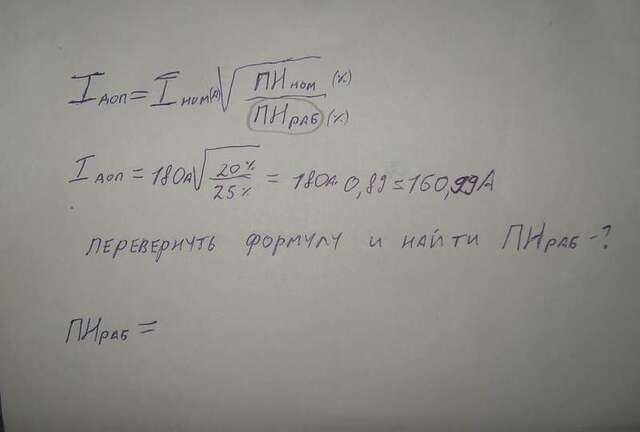 Iдоп = Iном(А) √ ПНном (%) / ПНраб (%)
Iдоп = 180А √ 20% / 25% = 180А · 0,89 = 160,99А
ПЕРЕВЕРНУТЬ ФОРМУЛУ И НАЙТИ ПНраб - ?
ПНраб =